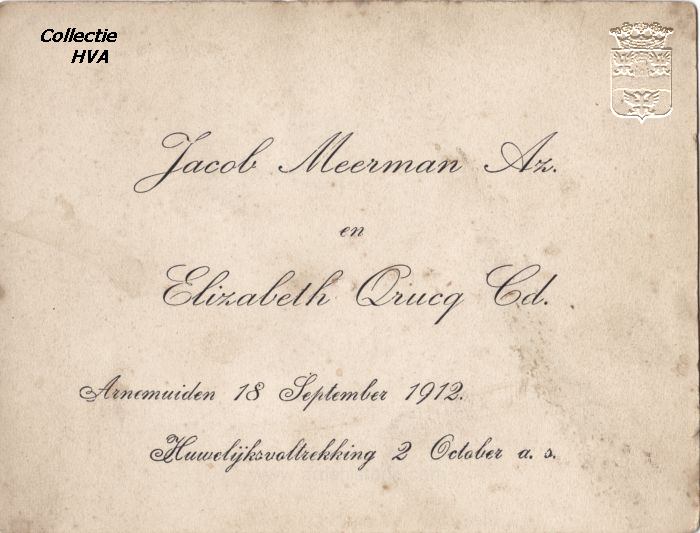 Collectie
HVA
Jacob Meerman Az.
en
Elizabeth Crucq Cd.
Arnemuiden 18 September 1912.
Huwelijksvoltrekking 2 October a. s.